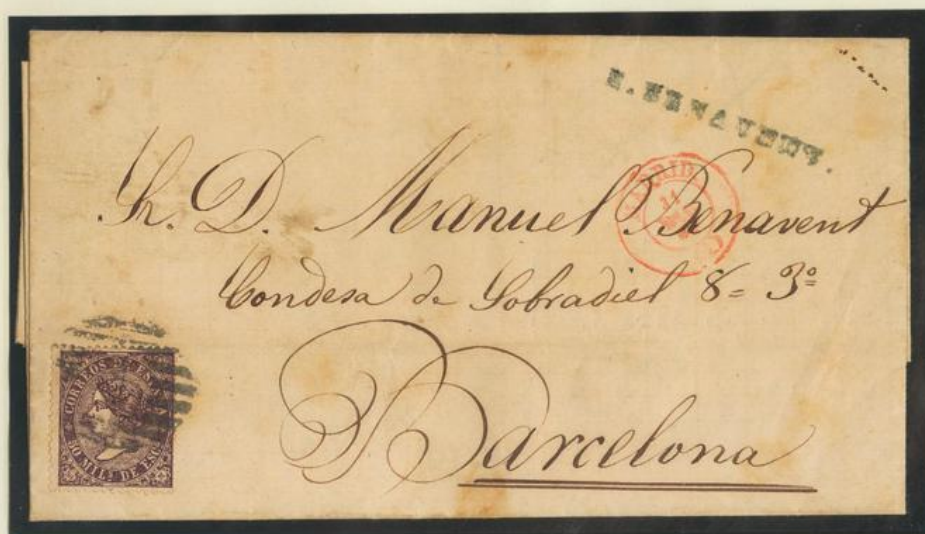 E. BENAVENT.
MADRID
Sr. D. Manuel Benavent
Condesa de Sobradiel 8= 3º
Barcelona
CORREOS DE ES
50 MIL.S DE ESC